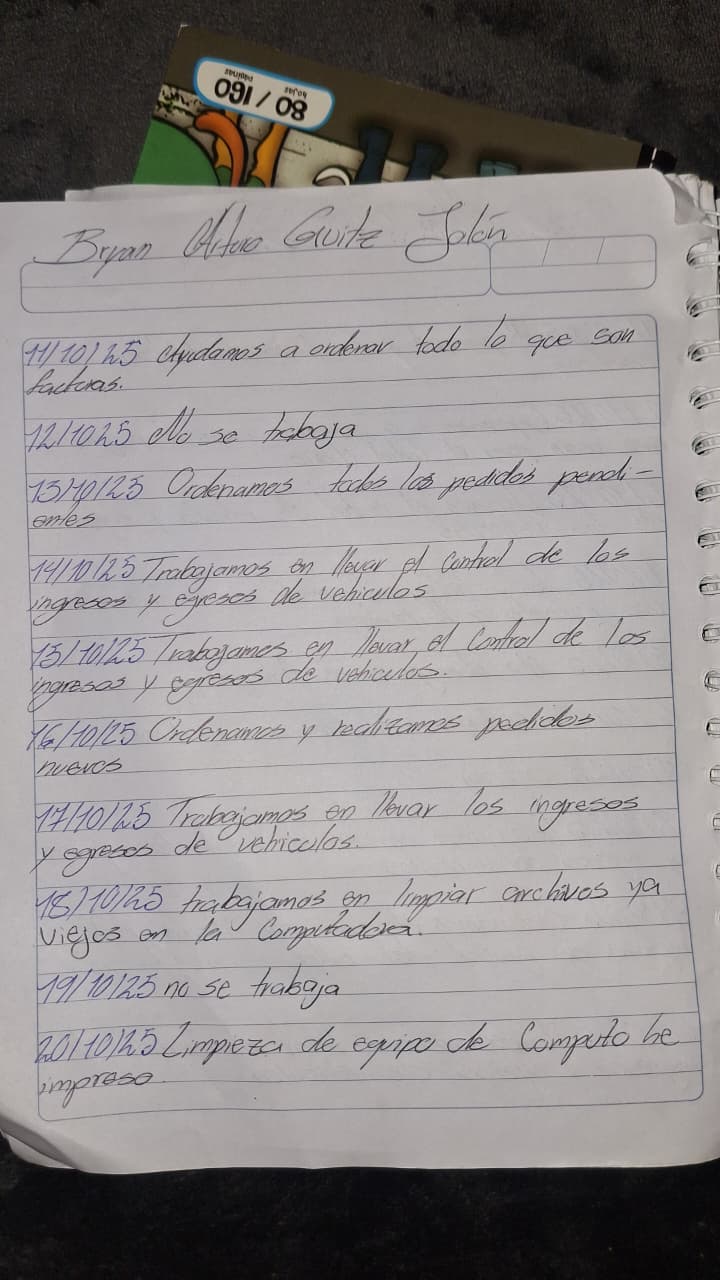 80 / 160
hojas
páginas
Bryan Arturo Guitz Jolón
11/10/25 Ayudamos a ordenar todo lo que son
facturas.
12/1025 No se trabaja
13/10/25 Ordenamos todos los pedidos pendi-
entes
14/10/25 Trabajamos en llevar el control de los
ingresos y egresos de vehiculos
15/10/25 Trabajamos en llevar el control de los
ingresos y egresos de vehiculos.
16/10/25 Ordenamos y realizamos pedidos
nuevos
17/10/25 Trabajamos en llevar los ingresos
y egresos de vehiculos.
18/10/25 trabajamos en limpiar archivos ya
viejos en la Computadora.
19/10/25 no se trabaja
20/10/25 Limpieza de equipo de Computo he
impreso